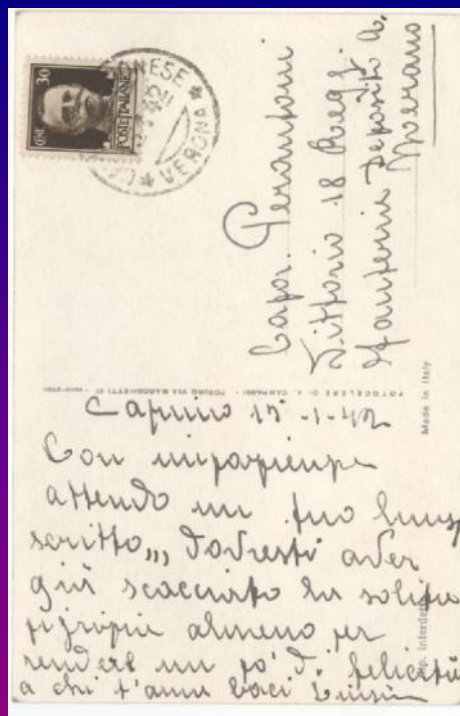 CENT. 30
POSTE ITALIANE
VERONA
Capor. Perantoni
Vittorio 18 Regg.
Fanteria Deposito A.
Merano
FOTOCELERE DI A. CAMPASSI - TORINO VIA MAROCHETTI
Made in Italy
Caprino 15-1-42
Con impazienza
attendo un tuo lungo
scritto,,, dovresti aver
già scacciato la solita
pigrizia almeno per
rendere un po' di felicità
a chi t'ama baci